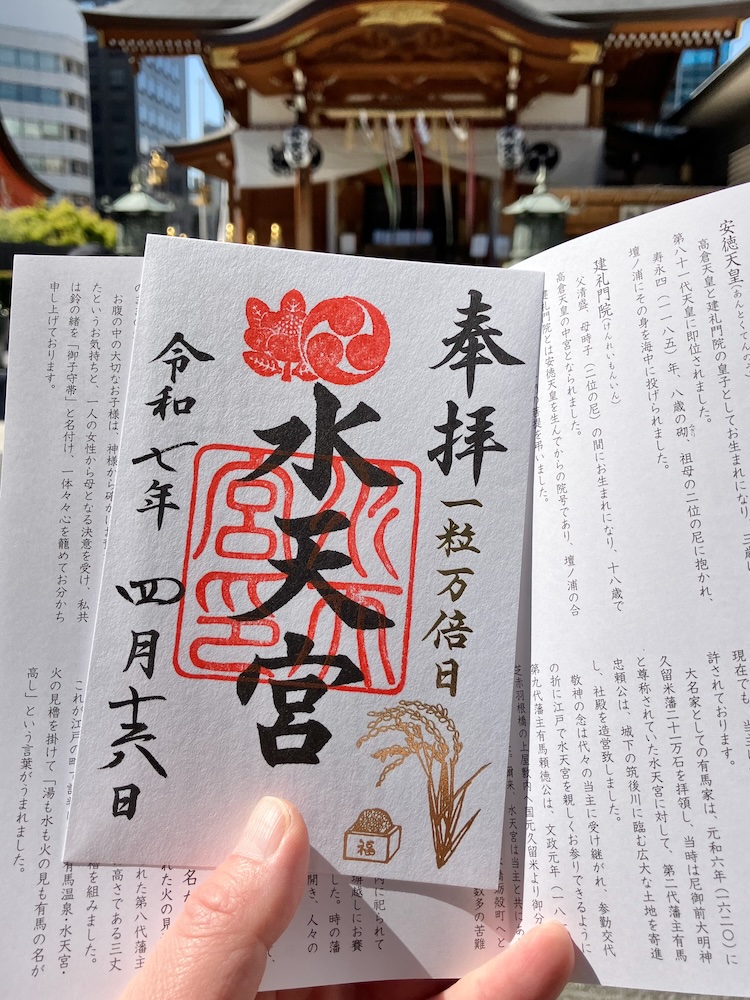 奉拝
一粒万倍日
水天宮
令和七年
四月十六日
福
安徳天皇(あんとくてんのう)
高倉天皇と建礼門院の皇子としてお生まれになり
第八十一代天皇に即位されました。
寿永四(一一八五)年、八歳の砌、祖母の二位の尼に抱かれ、
壇ノ浦にその身を海中に投げられました。
建礼門院(けんれいもんいん)
父清盛、母時子(二位の尼)の間にお生まれになり、十八歳で
高倉天皇の中宮となられました。
建礼門院とは安徳天皇を生んでからの院号であり、壇ノ浦の合
を弔いました。
現在でも、
許されております。
大名家としての有馬家は、元和六年(一六二〇)に
久留米藩二十一万石を拝領し、当時は尼御前大明神
と尊称されていた水天宮に対して、第二代藩主有馬
忠頼公は、城下の筑後川に臨む広大な土地を寄進
し、社殿を造営致しました。
敬神の念は代々の当主に受け継がれ、参勤交代
の折に江戸で水天宮を親しくお参りできるように
第九代藩主有馬頼徳公は、文政元年(一八
芝赤羽根橋の上屋敷内へ国元久留米より御分
水天宮は当主と共に
蛎殻町へと
数多の苦難
お腹の中の大切なお子様は、神様から
たというお気持ちと、一人の女性から母となる決意を受け、私共
は鈴の緒を「御子守帯」と名付け、一体々々心を籠めてお分かち
申し上げております。
内に祀られて
塀越しにお賽
ました。時の藩
開き、人々の
た第八代藩主
高さである三丈
櫓を組みました。
有馬温泉・水天宮・
これが江戸の町
火の見櫓を掛けて「湯も水も火の見も有馬の名が
高し」という言葉がうまれました。